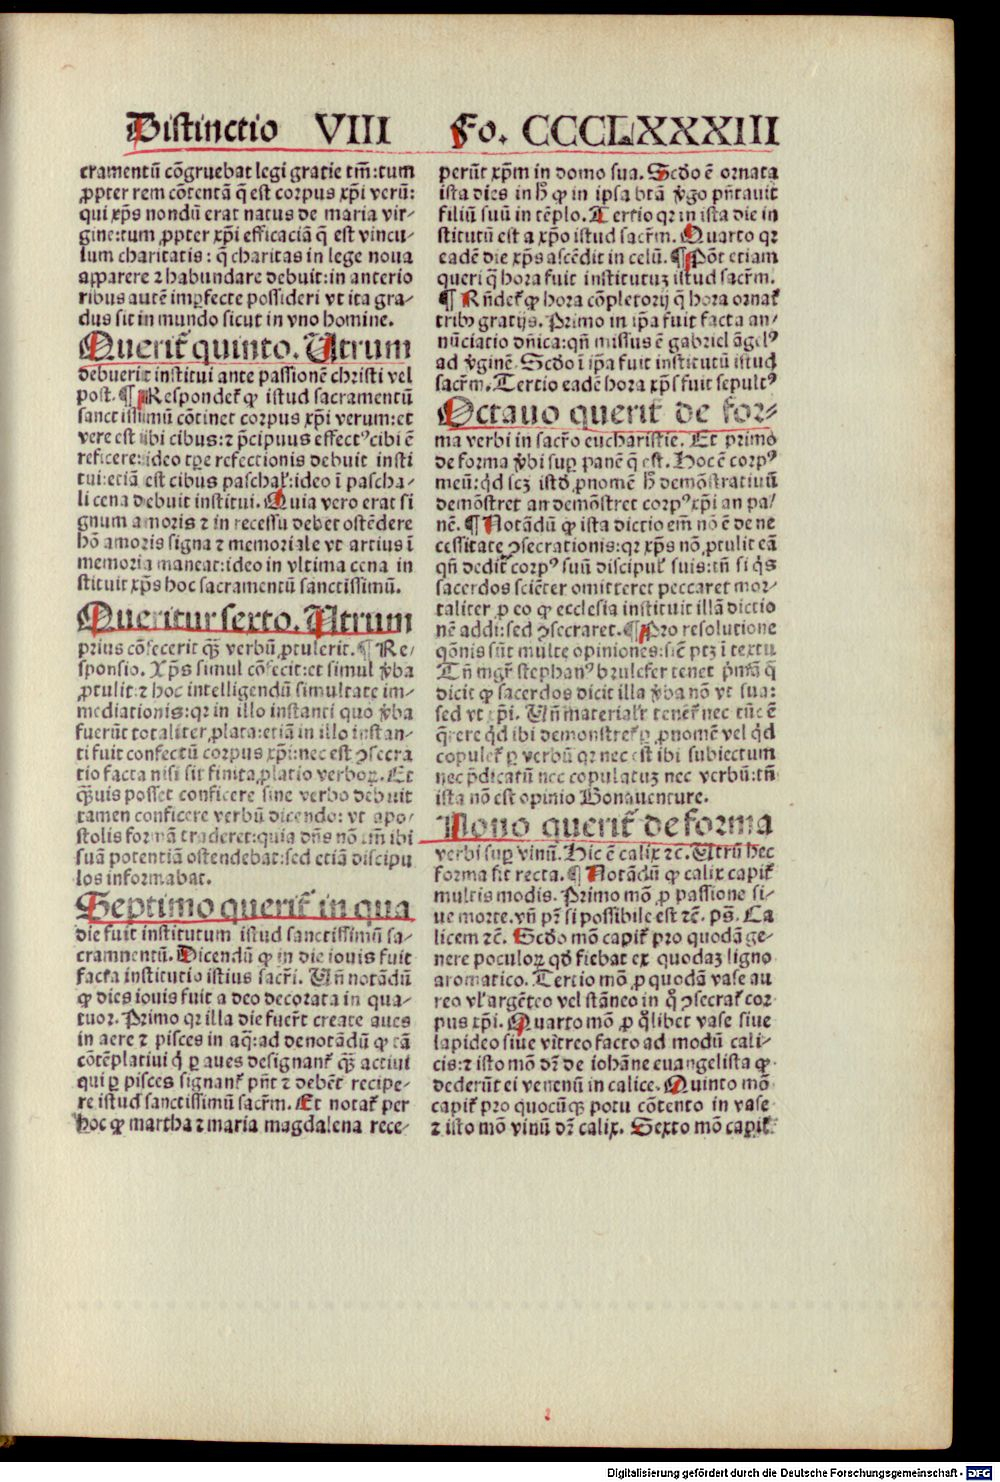 Distinctio VIII Fo. CCCCLXXXIIII
cramentū cōgruebat legi gratie tm̄: tum
ꝓpter rem cōtentā q̄ est corpus xp̄i verū:
qui xp̄s nondū erat natus de maria vir-
gine: tum ꝓpter xp̄i efficaciā q̄ est vincu-
lum charitatis: q̄ charitas in lege noua
apparere ⁊ habundare debuit: in anterio
ribus autē imꝑfecte possideri vt ita gra-
dus sit in mundo sicut in vno homine.
Querit᷑ quinto. Utrum
debuerit institui ante passionē christi vel
post. ¶ Respondet᷑ ꝙ istud sacramentū
sanctissimū cōtinet corpus xp̄i verum: et
vere est ibi cibus: ⁊ p̄cipuus effectꝰ cibi ē
reficere: ideo tꝑe refectionis debuit insti
tui: etiā est cibus paschal᷑: ideo ī pascha-
li cena debuit institui. Quia vero erat si
gnum amoris ⁊ in recessu debet ostēdere
hō amoris signa ⁊ memoriale vt artius ī
memoria maneat: ideo in vltima cena in
stituit xp̄s hoc sacramentū sanctissimū.
Queritur sexto. Utrum
prius cōfecerit qȝ verbū ꝓtulerit. ¶ Re-
sponsio. Xp̄s simul cōfecit: et simul v̄ba
ꝓtulit: ⁊ hoc intelligendū simultate im-
mediationis: qr in illo instanti quo v̄ba
fuerūt totaliter ꝓlata: etiā in illo instan-
ti fuit confectū corpus xp̄i: nec est ꝯsecra
tio facta nisi sit finita ꝓlatio verboꝝ. Et
qȝuis posset conficere sine verbo debuit
tamen conficere verbū dicendo: vt apo-
stolis formā traderet: quia dn̄s nō tm̄ ibi
suā potentiā ostendebat: sed etiā discipu
los informabat.
Septimo querit᷑ in qua
die fuit institutum istud sanctissimū sa-
cramnentū. Dicendū ꝙ in die iouis fuit
facta institutio istius sacr̄i. Un̄ notādū
ꝙ dies iouis fuit a deo decorata in qua-
tuor. Primo qr illa die fuer̄t create aues
in aere ⁊ pisces in aq̄: ad denotādū ꝙ tā
cōtēplatiui q̇ ꝑ aues designant᷑ qȝ actiui
qui ꝑ pisces signant᷑ pn̄t ⁊ debēt recipe-
re istud sanctissimū sacr̄m. Et notat᷑ per
hoc ꝙ martha ⁊ maria magdalena rece-
perūt xp̄m in domo sua. Scdo ē ornata
ista dies in h̄ ꝙ in ipsa btā v̄go pn̄tauit
filiū suū in tēplo. Tertio qr in ista die in
stitutū est a xp̄o istud sacr̄m. Quarto qr
eadē die xp̄s ascēdit in celū. ¶ Pōt etiam
queri q̄ hora fuit institutuȝ istud sacr̄m.
¶ Rn̄det᷑ ꝙ hora cōpletorij q̄ hora ornat᷑
tribꝰ gratijs. Primo in ip̄a fuit facta an-
nūciatio dn̄ica: qn̄ missus ē gabriel āgelꝰ
ad v̄ginē. Scdo ī ip̄a fuit institutū istud
sacr̄m. Tertio eadē hora xp̄s fuit sepultꝰ
Octauo querit᷑ de for-
ma verbi in sacr̄o eucharistie. Et primo
de forma v̄bi suꝑ panē q̄ est. Hoc ē corpꝰ
meū: qd̄ scȝ istd̄ ꝓnomē h̄ demōstratiuū
demōstret an demōstret corpꝰ xp̄i an pa-
nē. ¶ Notādū ꝙ ista dictio em̄ nō ē de ne
cessitate ꝯsecrationis: qr xp̄s nō ꝓtulit eā
qn̄ dedit corpꝰ suū discipul᷑ suis: tn̄ si q̇s
sacerdos sciēter omitteret peccaret mor-
taliter ꝑ eo ꝙ ecclesia instituit illā dictio
nē addi: sed ꝯsecraret. ¶ Pro resolutione
qōnis sūt multe opiniones: sic̄ ptȝ ī textu
Tn̄ mgr̄ stephanꝰ brulefer tenet p̄mā q̄
dicit ꝙ sacerdos dicit illa v̄ba nō vt sua:
sed vt xp̄i. Un̄ material᷑r tenet᷑ nec tūc ē
q̄rere qd̄ ibi demonstret᷑ ꝑ ꝓnomē vel qd̄
copulet᷑ ꝑ verbū qr nec est ibi subiectum
nec p̄dicatū nec copulatuȝ nec verbū: tn̄
ista nō est opinio Bonauenture.
Nono querit᷑ de forma
verbi suꝑ vinū. Hic ē calix ⁊c. Utrū hec
forma sit recta. ¶ Notādū ꝙ calix capit᷑
multis modis. Primo mō ꝓ passione si-
ue morte. vn̄ pr̄ si possibile est ⁊c̄. ps̄. Ca
licem ⁊c̄. Scdo mō capit᷑ pro quodā ge-
nere poculoꝝ qd̄ fiebat ex quodaȝ ligno
aromatico. Tertio mō ꝓ quodā vase au
reo vl᷑ argēteo vel stāneo in q̊ ꝯsecrat᷑ cor
pus xp̄i. Quarto mō ꝓ q̊libet vase siue
lapideo siue vitreo facto ad modū cali-
cis: ⁊ isto mō dr̄ de iohāne euangelista ꝙ
dederūt ei venenū in calice. Quinto mō
capit᷑ pro quocūqȝ potu cōtento in vase
⁊ isto mō vinū dr̄ calix. Sexto mō capit᷑
Digitalisierung gefördert durch die Deutsche Forschungsgemeinschaft - DFG